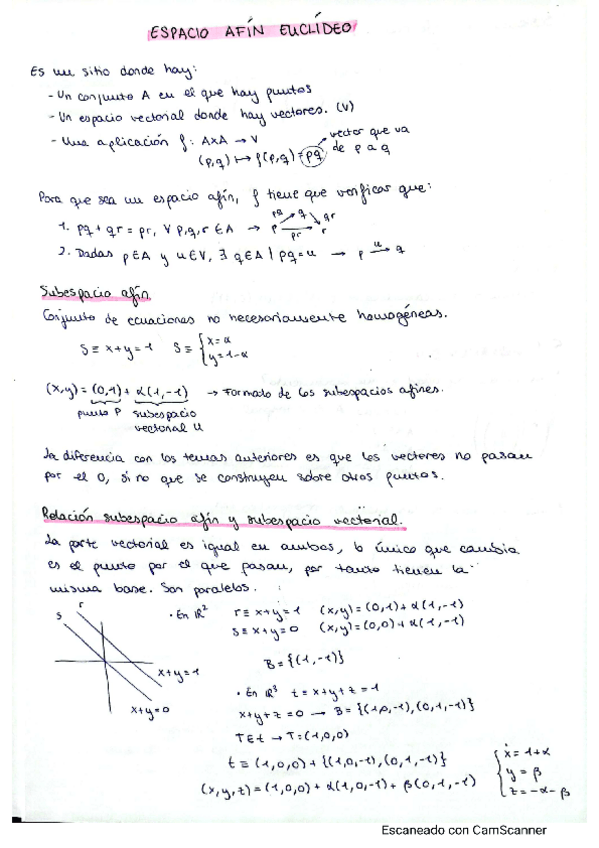 ESPACIO AFÍN EUCLÍDEO
Es un sitio donde hay:
- Un conjunto A en el que hay puntos
- Un espacio vectorial donde hay vectores. (V)
- Una aplicación f: A×A → V
(p,q) ↦ f(p,q) = pq
vector que va
de p a q
Para que sea un espacio afín, f tiene que verificar que:
1. pq + qr = pr, ∀ p,q,r ∈ A → p pq q qr r pr
2. Dadas p∈A y u∈V, ∃ q∈A | pq=u → p u q
Subespacio afín.
Conjunto de ecuaciones no necesariamente homogéneas.
S ≡ x+y=1 S ≡ { x=α
y=1-α
(x,y) = (0,1) + α(1,-1) → Formato de los subespacios afines.
punto P subespacio
vectorial U
La diferencia con los temas anteriores es que los vectores no pasan
por el 0, si no que se construyen sobre otros puntos.
Relación subespacio afín y subespacio vectorial.
La parte vectorial es igual en ambos, lo único que cambia
es el punto por el que pasan, por tanto tienen la
misma base. Son paralelos.
s r
x+y=1
x+y=0
· En ℝ² r ≡ x+y=1 (x,y) = (0,1)+α(1,-1)
s ≡ x+y=0 (x,y) = (0,0)+α(1,-1)
B = {(1,-1)}
· En ℝ³ t = x+y+z=1
x+y+z=0 → B = {(1,0,-1),(0,1,-1)}
T∈t → T=(1,0,0)
t ≡ (1,0,0) + {(1,0,-1),(0,1,-1)}
(x,y,z) = (1,0,0) + α(1,0,-1) + β(0,1,-1)
{ x = 1+α
y = β
z = -α-β
Escaneado con CamScanner